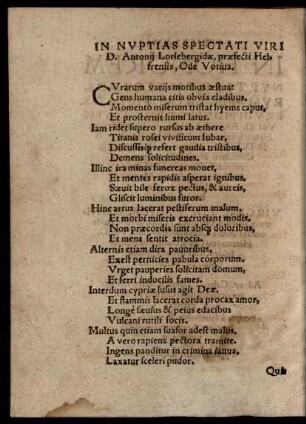 IN NVPTIAS SPECTATI VIRI
D. Antonij Lorlebergidæ, præfecti Hel-
frensis, Ode Votiua.
CVrarum varijs motibus æstuat
Gens humana citis obvia cladibus.
Momentò miserum tristat hyems caput,
Et prosternit humi latus.
Iam ridet supero rursus ab æthere
Titanis rosei vivificum lubar,
Discussisq; refert gaudia tristibus,
Demens solicitudines.
Illinc ira minas funereas mouet,
Et mentes rapidis asperat ignibus.
Sæuit bile ferox pectus, & aureis,
Gliscit luminibus furor.
Hinc artus lacerat pestiferum malum,
Et morbi miseris excruciant modis.
Non præcordia sunt absq; doloribus,
Et mens sentit atrocia.
Alternis etiam dira pauoribus,
Exest pernicies pabula corporum.
Vrget pauperies solicitam domum,
Et ferri indocilis fames.
Interdum cypriæ lusus agit Deæ,
Et flammis lacerat corda procax amor,
Longè sæuius & peius edacibus
Vulcani rutili focis.
Multus quin etiam suasor adest malus,
A vero rapiens pectora tramite.
Ingens panditur in crimina ianua,
Laxatur sceleri pudor.